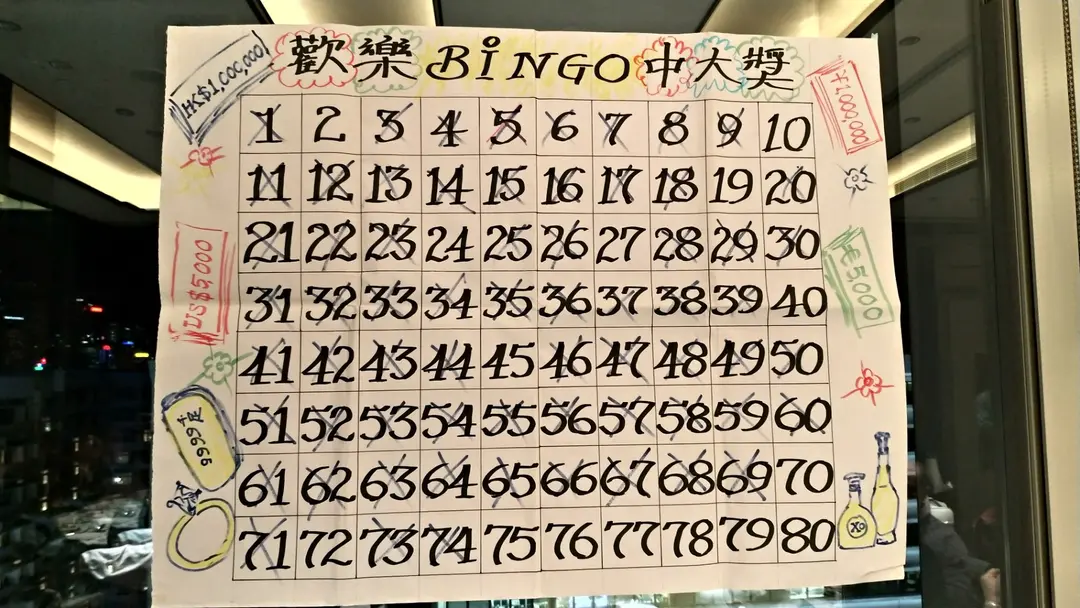 歡樂 BiNGO 中大獎
HK$1,000,000
¥1,000,000
1 2 3 4 5 6 7 8 9 10
11 12 13 14 15 16 17 18 19 20
21 22 23 24 25 26 27 28 29 30
US$5,000
31 32 33 34 35 36 37 38 39 40
41 42 43 44 45 46 47 48 49 50
51 52 53 54 55 56 57 58 59 60
9999足
61 62 63 64 65 66 67 68 69 70
71 72 73 74 75 76 77 78 79 80
XO